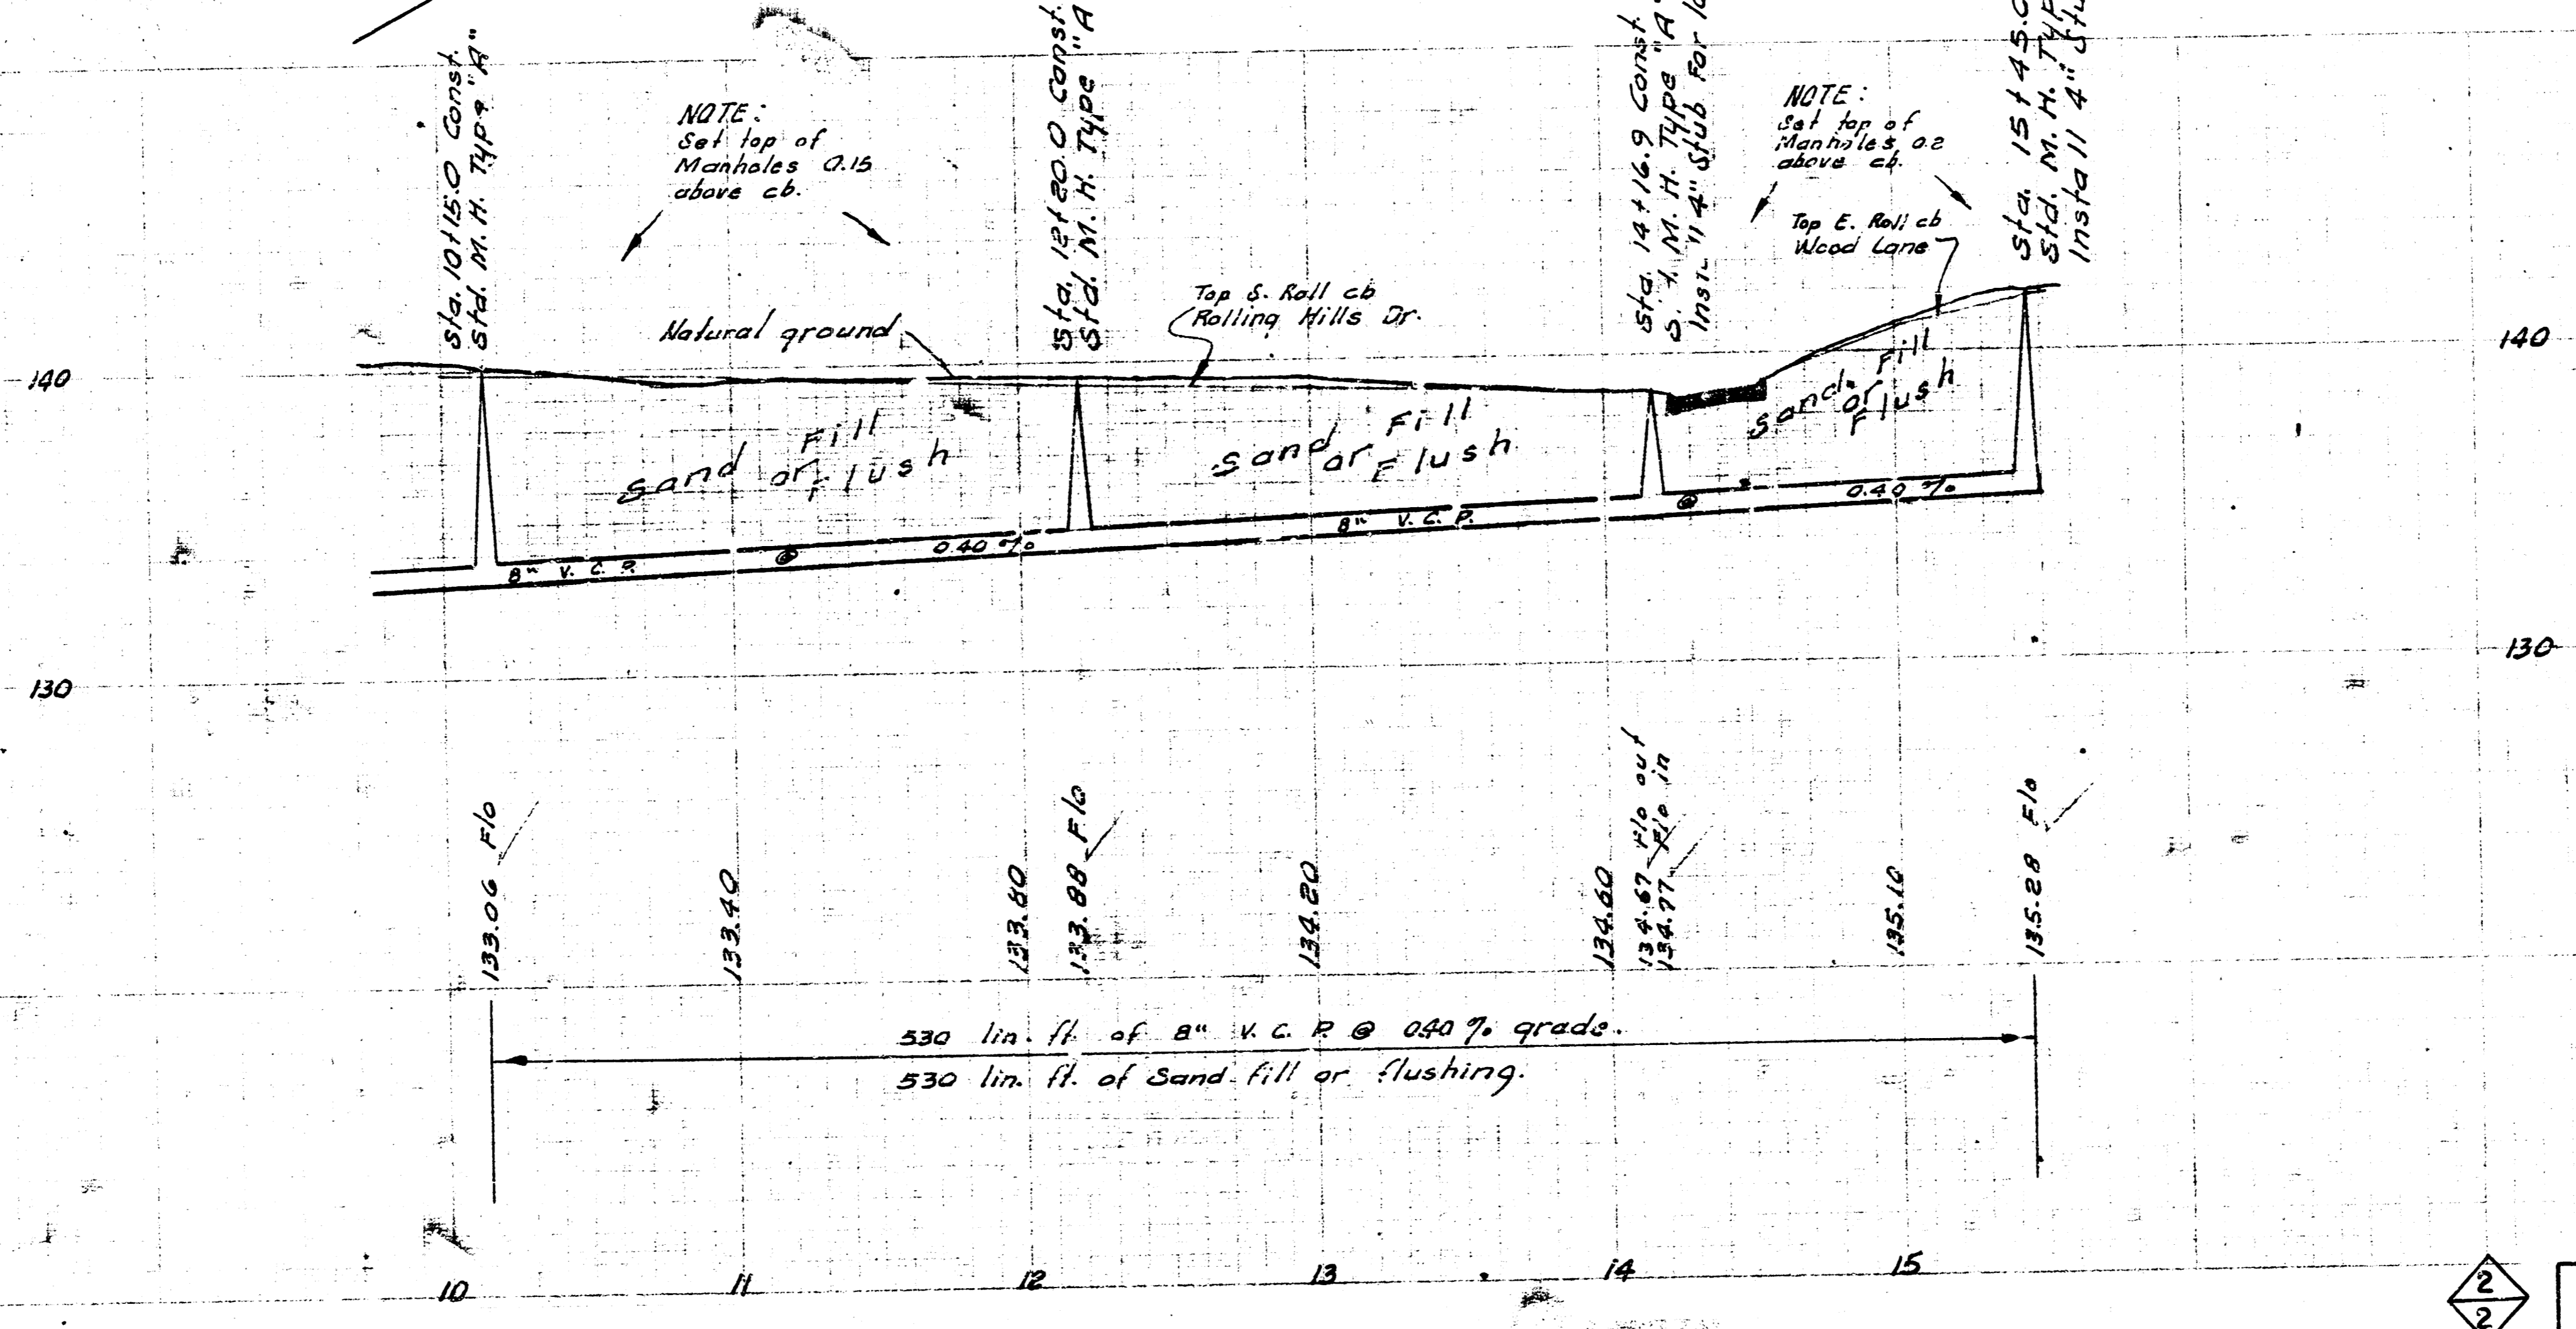 Sta. 10+15.0 Const.
Std. M. H. Type "A"
NOTE:
Set top of
Manholes 0.15
above cb.
Sta. 12+20.0 Const.
Std. M. H. Type "A
Sta. 14+16.9 Const.
M. H. Type "A"
4" Stub For
NOTE:
Set top of
Manholes 0.2
above cb.
Top E. Roll cb
Wood Lane
Sta. 15+45.0
Std. M. H. Typ
Install 4" Stu
Natural ground
Top S. Roll cb
Rolling Hills Dr.
140
140
Sand Fill
or Flush
Sand Fill
or Flush
Sand Fill
or Flush
8" V. C. P. @ 0.40 %
8" V. C. P. @ 0.40 %
130
130
133.06 Flo
133.40
133.80
133.88 Flo
134.20
134.60
134.67 Flo out
134.77 Flo in
135.10
135.28 Flo
530 lin. ft. of 8" V. C. P. @ 0.40 % grade.
530 lin. ft. of Sand fill or flushing.
10 11 12 13 14 15
2
2